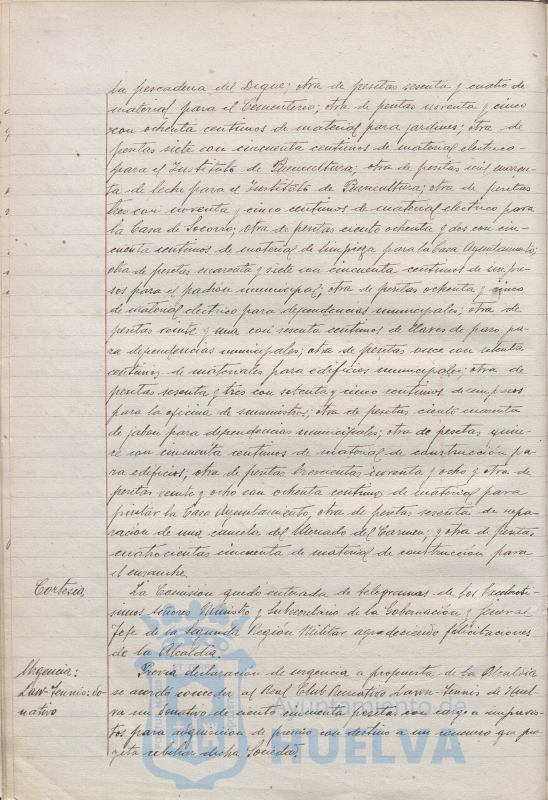 la pescaderia del Dique; otra de pesetas sesenta y cuatro de
material para el Cementerio; otra de pesetas noventa y cinco
con ochenta centimos de material para jardines; otra de
pesetas siete con cincuenta centimos de material electrico
para el Instituto de Puericultura; otra de pesetas mil cuaren-
ta de leche para el Instituto de Puericultura; otra de pesetas
tres con noventa y cinco centimos de material electrico para
la Casa de Socorro; otra de pesetas ciento ochenta y dos con cin-
cuenta centimos de material de limpieza para la Casa Ayuntamiento;
otra de pesetas cuarenta y siete con cincuenta centimos de impre-
sos para el padron municipal; otra de pesetas ochenta y cinco
de material electrico para dependencias municipales; otra de
pesetas veinte y una con sesenta centimos de llaves de paso pa-
ra dependencias municipales; otra de pesetas once con setenta
centimos de materiales para edificios municipales; otra de
pesetas sesenta y tres con setenta y cinco centimos de impresos
para la oficina de suministros; otra de pesetas ciento cuarenta
de jabon para dependencias municipales; otra de pesetas quin-
ce con cincuenta centimos de material de construccion pa-
ra edificios; otra de pesetas trescientas noventa y ocho y otra de
pesetas veinte y ocho con ochenta centimos de material para
pintar la Casa Ayuntamiento, otra de pesetas sesenta de repa-
racion de una cancela del Mercado del Carmen; y otra de pesetas
cuatrocientas cincuenta de material de construccion para
el ensanche.
Cortesia La Comisión quedó enterada de telegramas de los Excelenti-
simos señores Ministro y Subsecretario de la Gobernación y General
Jefe de la segunda Región Militar agradeciendo felicitaciones
de la Alcaldia.
Urgencia: Previa declaracion de urgencia a propuesta de la Alcaldia
Law-Tennis: do- se acordó conceder al Real Club Recreativo Lawn-Tennis de Huel-
nativo va un donativo de ciento cincuenta pesetas con cargo a imprevis-
tos para adquisicion de premio con destino a un concurso que pro-
yecta celebrar dicha Sociedad.
Ayuntamiento de
HUELVA